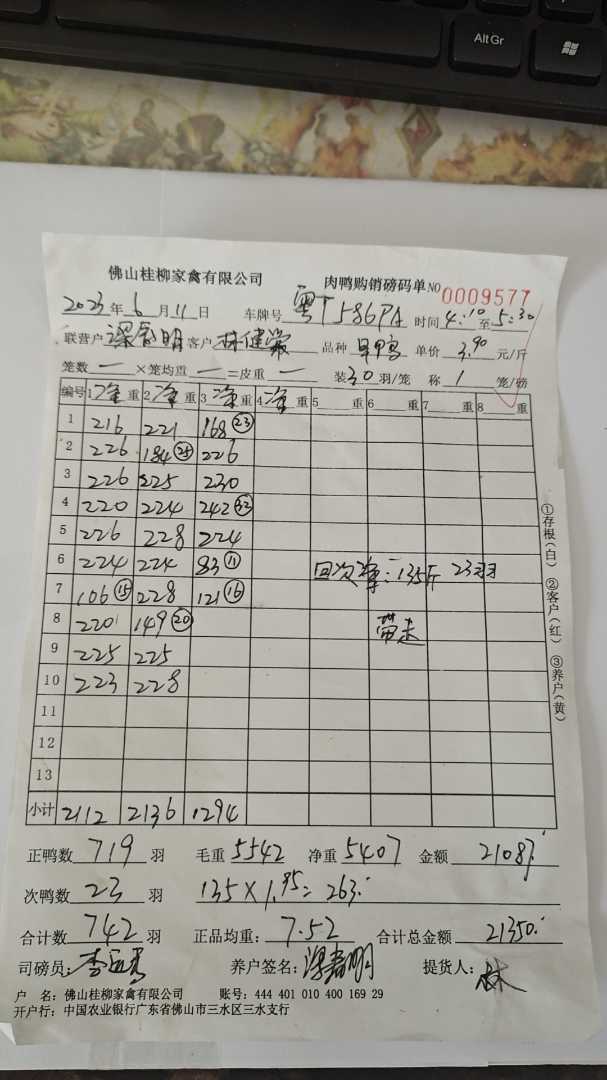 Alt Gr
佛山桂柳家禽有限公司 肉鸭购销磅码单 NO 0009577
2023年6月11日 车牌号 粤T586PA 时间4:10至5:30
联营户 明 客户 林健 品种 旱鸭 单价 3.90 元/斤
笼数 一 ×笼均重 一 =皮重 一 装30羽/笼 称 1 笼/磅
编号 1净重 2净重 3净重 4净重 5重 6重 7重 8重
1 216 221 168(23)
2 226 184(25) 226
3 226 225 230
4 220 224 242(32)
5 226 228 224
6 224 224 83(11) 回次净:135斤 23羽
7 106(15) 228 121(16)
8 220 149(20) 带走
9 225 225
10 223 228
11
12
13
小计 2112 2136 1294
①存根(白) ②客户(红) ③养户(黄)
正鸭数 719 羽 毛重 5542 净重 5407 金额 21087.
次鸭数 23 羽 135×1.95=263.
合计数 742 羽 正品均重: 7.52 合计总金额 21350.
司磅员: 李 养户签名: 明 提货人: 林
户 名: 佛山桂柳家禽有限公司 账号: 444 401 010 400 169 29
开户行: 中国农业银行广东省佛山市三水区三水支行